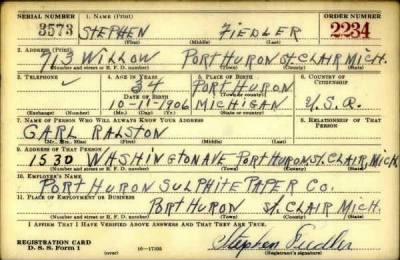 SERIAL NUMBER 1. NAME (Print) ORDER NUMBER
3573 STEPHEN FIEDLER 2234
(First) (Middle) (Last)
2. ADDRESS (Print)
713 WILLOW PORT HURON ST. CLAIR MICH.
(Number and street or R. F. D. number) (Town) (County) (State)
3. TELEPHONE 4. AGE IN YEARS 5. PLACE OF BIRTH 6. COUNTRY OF CITIZENSHIP
34 PORT HURON
DATE OF BIRTH
10-11-1906 MICHIGAN U.S.A.
(Exchange) (Number) (Mo.) (Day) (Yr.) (State or country)
7. NAME OF PERSON WHO WILL ALWAYS KNOW YOUR ADDRESS 8. RELATIONSHIP OF THAT PERSON
CARL RALSTON
(Mr., Mrs., Miss) (First) (Middle) (Last)
9. ADDRESS OF THAT PERSON
1530 WASHINGTON AVE PORT HURON ST. CLAIR, MICH
(Number and street or R. F. D. number) (Town) (County) (State)
10. EMPLOYER'S NAME
PORT HURON SULPHITE PAPER CO.
11. PLACE OF EMPLOYMENT OR BUSINESS
PORT HURON ST. CLAIR MICH.
(Number and street or R. F. D. number) (Town) (County) (State)
I AFFIRM THAT I HAVE VERIFIED ABOVE ANSWERS AND THAT THEY ARE TRUE.
REGISTRATION CARD
D. S. S. Form 1 (over) 16-17105 Stephen Fiedler
(Registrant's signature)